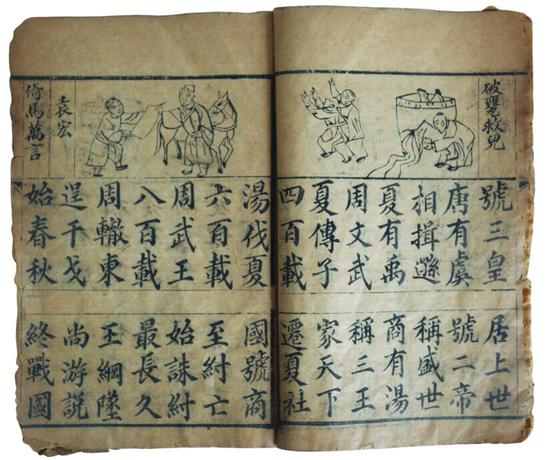 破甕救兒
號三皇 居上世
唐有虞 號二帝
相揖遜 稱盛世
夏有禹 商有湯
周文武 稱三王
夏傳子 家天下
四百載 遷夏社
袁宏
倚馬萬言
湯伐夏 國號商
六百載 至紂亡
周武王 始誅紂
八百載 最長久
周轍東 王綱墜
逞千戈 尚游說
始春秋 終戰國